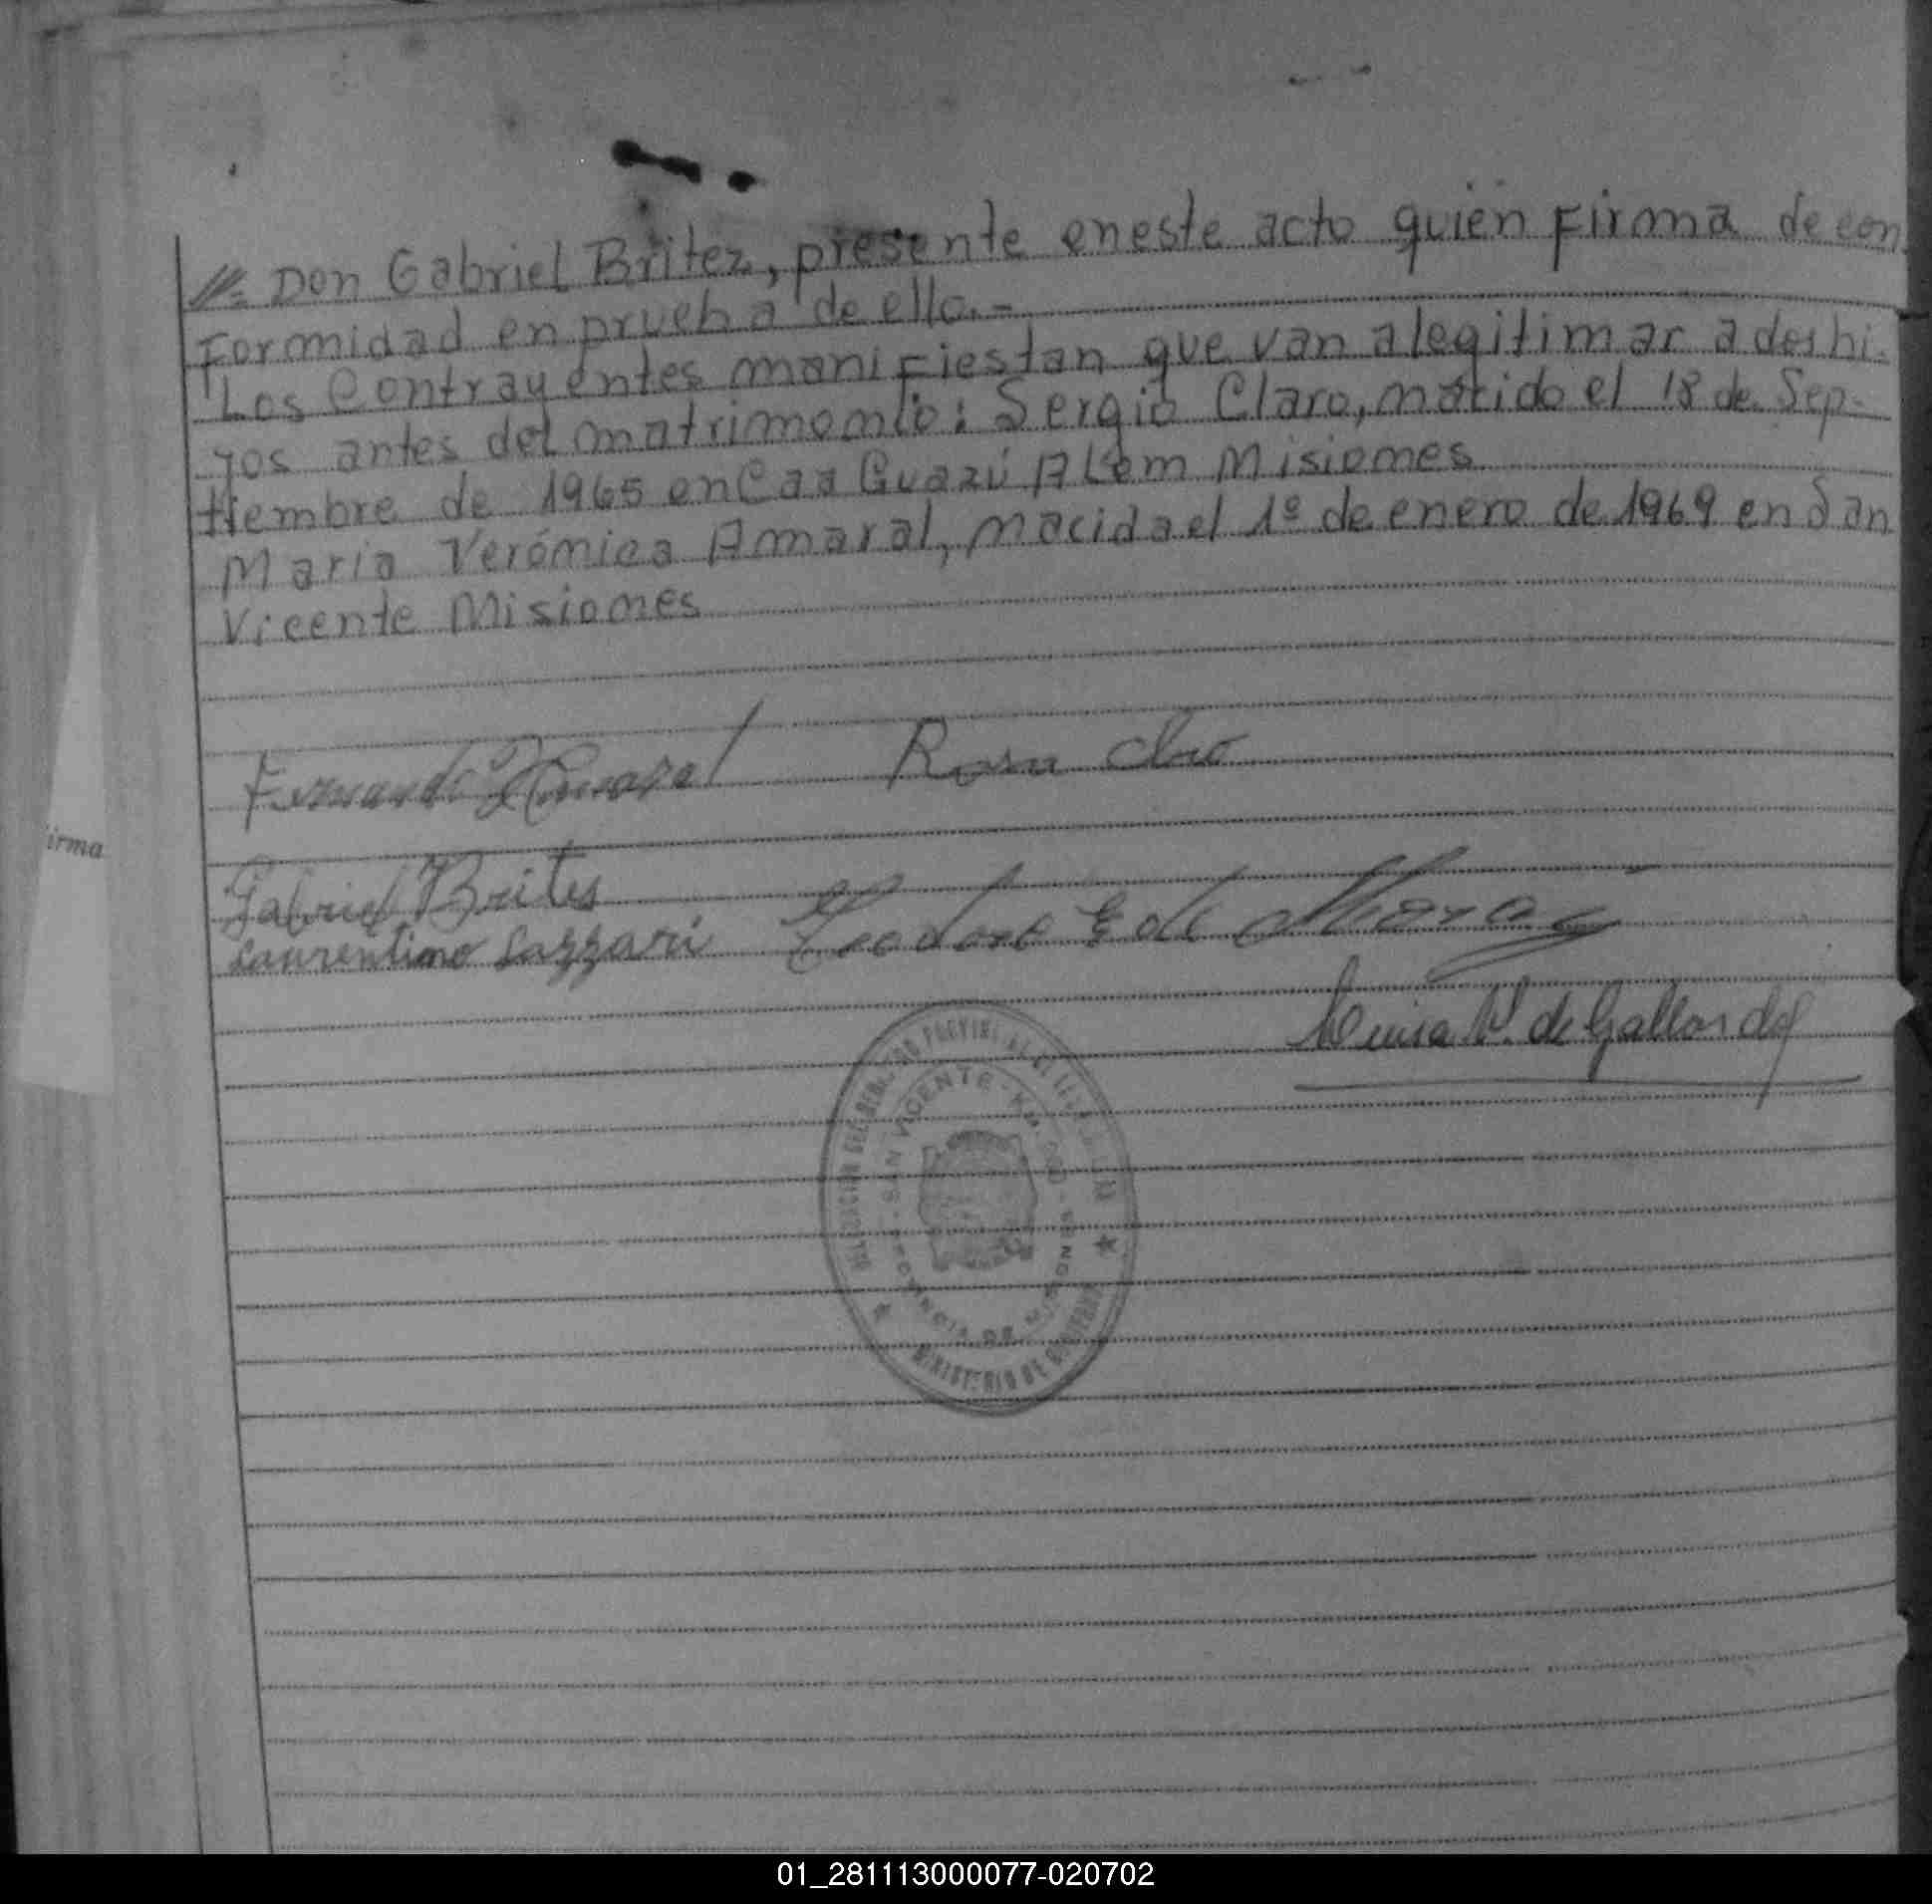 //= Don Gabriel Britez, presente en este acto quien Firma de con
Formidad en prueba de ello.-
Los Contrayentes maniFiestan que van a legitimar a dos hi-
jos antes del matrimonio: Sergio Claro, nacido el 18 de Sep-
tiembre de 1965 en Caa Guazú Alem Misiones
Maria Verónica Amaral, nacida el 1º de enero de 1969 en San
Vicente Misiones
Fernando Amaral Rosa Claro
irma
Gabriel Brites
Laurentino Lazzari Teodoro
Luisa V. de Gallardo
SAN VICENTE - KM.
PROVINCIA DE MISIONES
MINISTERIO DE GOBIERNO
01_281113000077-020702